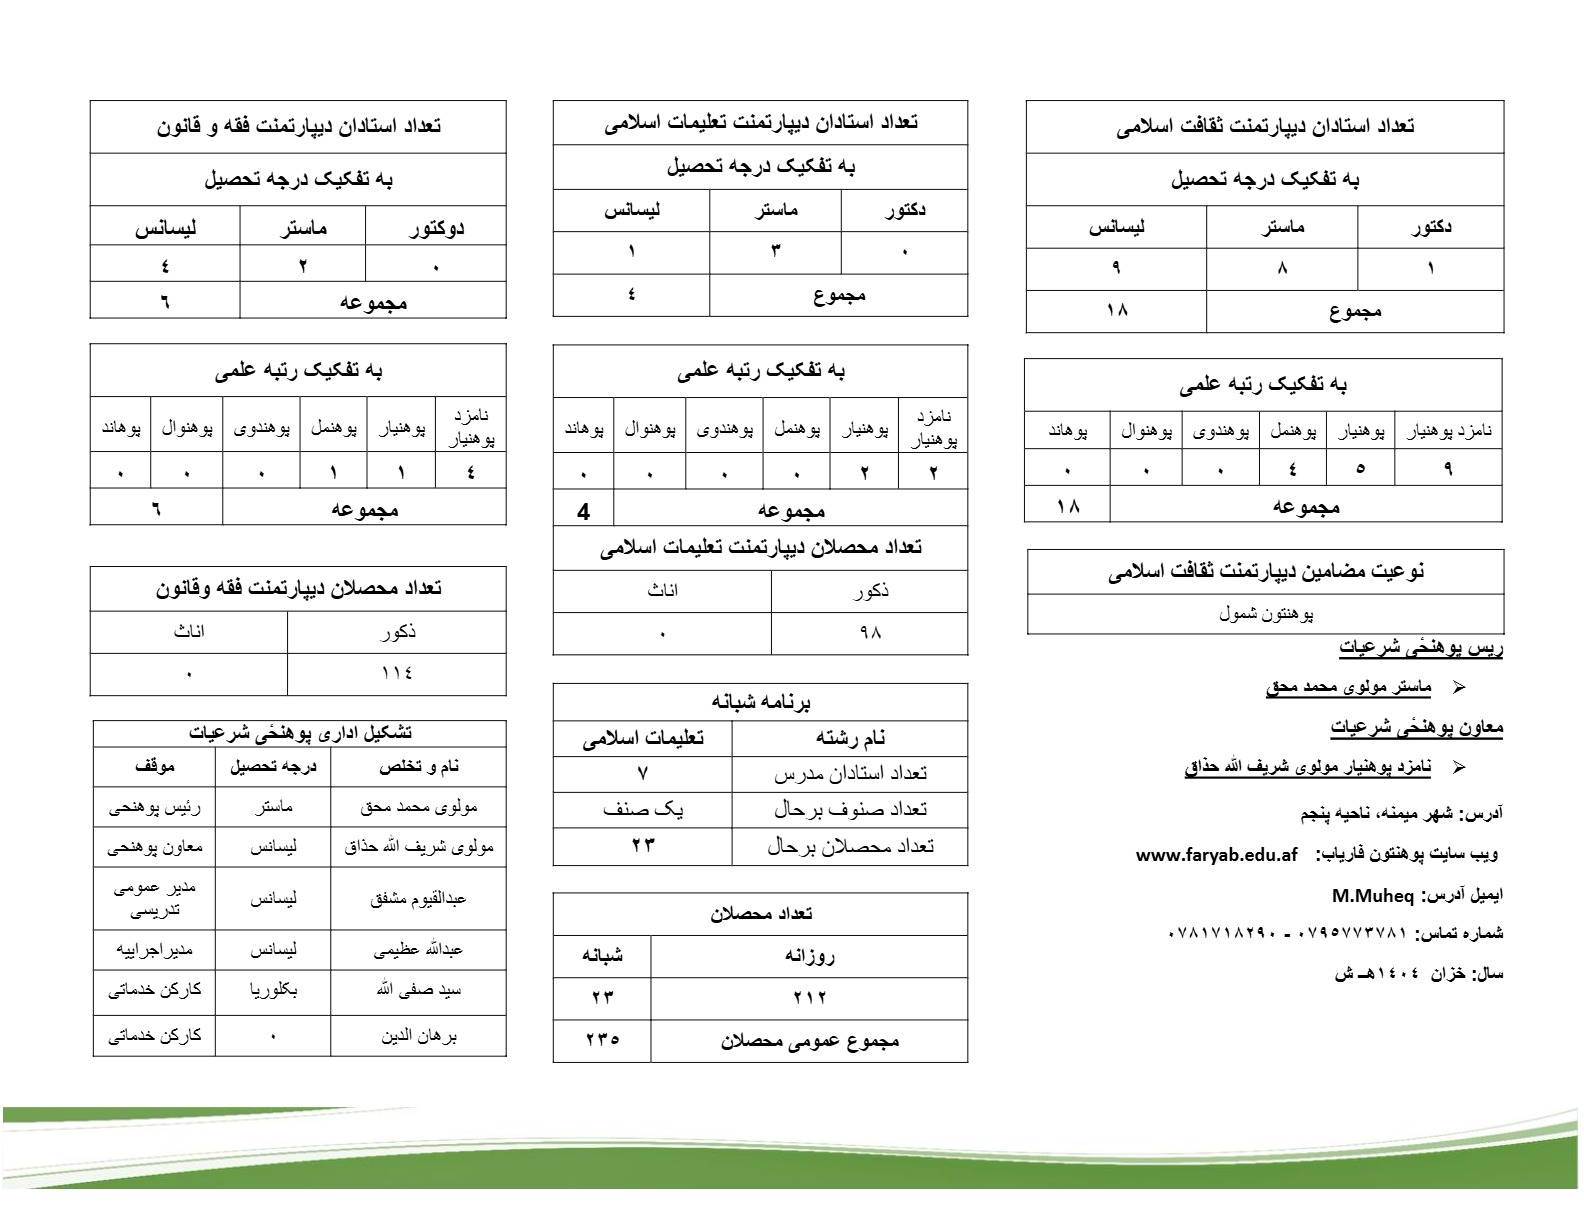 تعداد استادان دیپارتمنت ثقافت اسلامی
به تفکیک درجه تحصیل
دکتور ماستر لیسانس
۱ ۸ ۹
مجموع ۱۸
به تفکیک رتبه علمی
نامزد پوهنیار پوهنیار پوهنمل پوهندوی پوهنوال پوهاند
۹ ۵ ٤ ۰ ۰ ۰
مجموعه ۱۸
نوعیت مضامین دیپارتمنت ثقافت اسلامی
پوهنتون شمول
ریس پوهنځی شرعیات
ماستر مولوی محمد محق
معاون پوهنځی شرعیات
نامزد پوهنیار مولوی شریف الله حذاق
آدرس: شهر میمنه، ناحیه پنجم
ویب سایت پوهنتون فاریاب: www.faryab.edu.af
ایمیل آدرس: M.Muheq
شماره تماس: ۰۷۹٥۷۷۳۷۸۱ - ۰۷۸۱۷۱۸۲۹۰
سال: خزان ۱٤۰٤هـ ش
تعداد استادان دیپارتمنت تعلیمات اسلامی
به تفکیک درجه تحصیل
دکتور ماستر لیسانس
۰ ۳ ۱
مجموع ٤
به تفکیک رتبه علمی
نامزد
پوهنیار پوهنیار پوهنمل پوهندوی پوهنوال پوهاند
۲ ۲ ۰ ۰ ۰ ۰
مجموعه 4
تعداد محصلان دیپارتمنت تعلیمات اسلامی
ذکور اناث
۹۸ ۰
برنامه شبانه
نام رشته تعلیمات اسلامی
تعداد استادان مدرس ۷
تعداد صنوف برحال یک صنف
تعداد محصلان برحال ۲۳
تعداد محصلان
روزانه شبانه
۲۱۲ ۲۳
مجموع عمومی محصلان ۲۳٥
تعداد استادان دیپارتمنت فقه و قانون
به تفکیک درجه تحصیل
دوکتور ماستر لیسانس
۰ ۲ ٤
مجموعه ٦
به تفکیک رتبه علمی
نامزد
پوهنیار پوهنیار پوهنمل پوهندوی پوهنوال پوهاند
٤ ۱ ۱ ۰ ۰ ۰
مجموعه ٦
تعداد محصلان دیپارتمنت فقه وقانون
ذکور اناث
۱۱٤ ۰
تشکیل اداری پوهنځی شرعیات
نام و تخلص درجه تحصیل موقف
مولوی محمد محق ماستر رئیس پوهنحی
مولوی شریف الله حذاق لیسانس معاون پوهنحی
عبدالقیوم مشفق لیسانس مدیر عمومی
تدریسی
عبدالله عظیمی لیسانس مدیراجراییه
سید صفی الله بکلوریا کارکن خدماتی
برهان الدین ۰ کارکن خدماتی